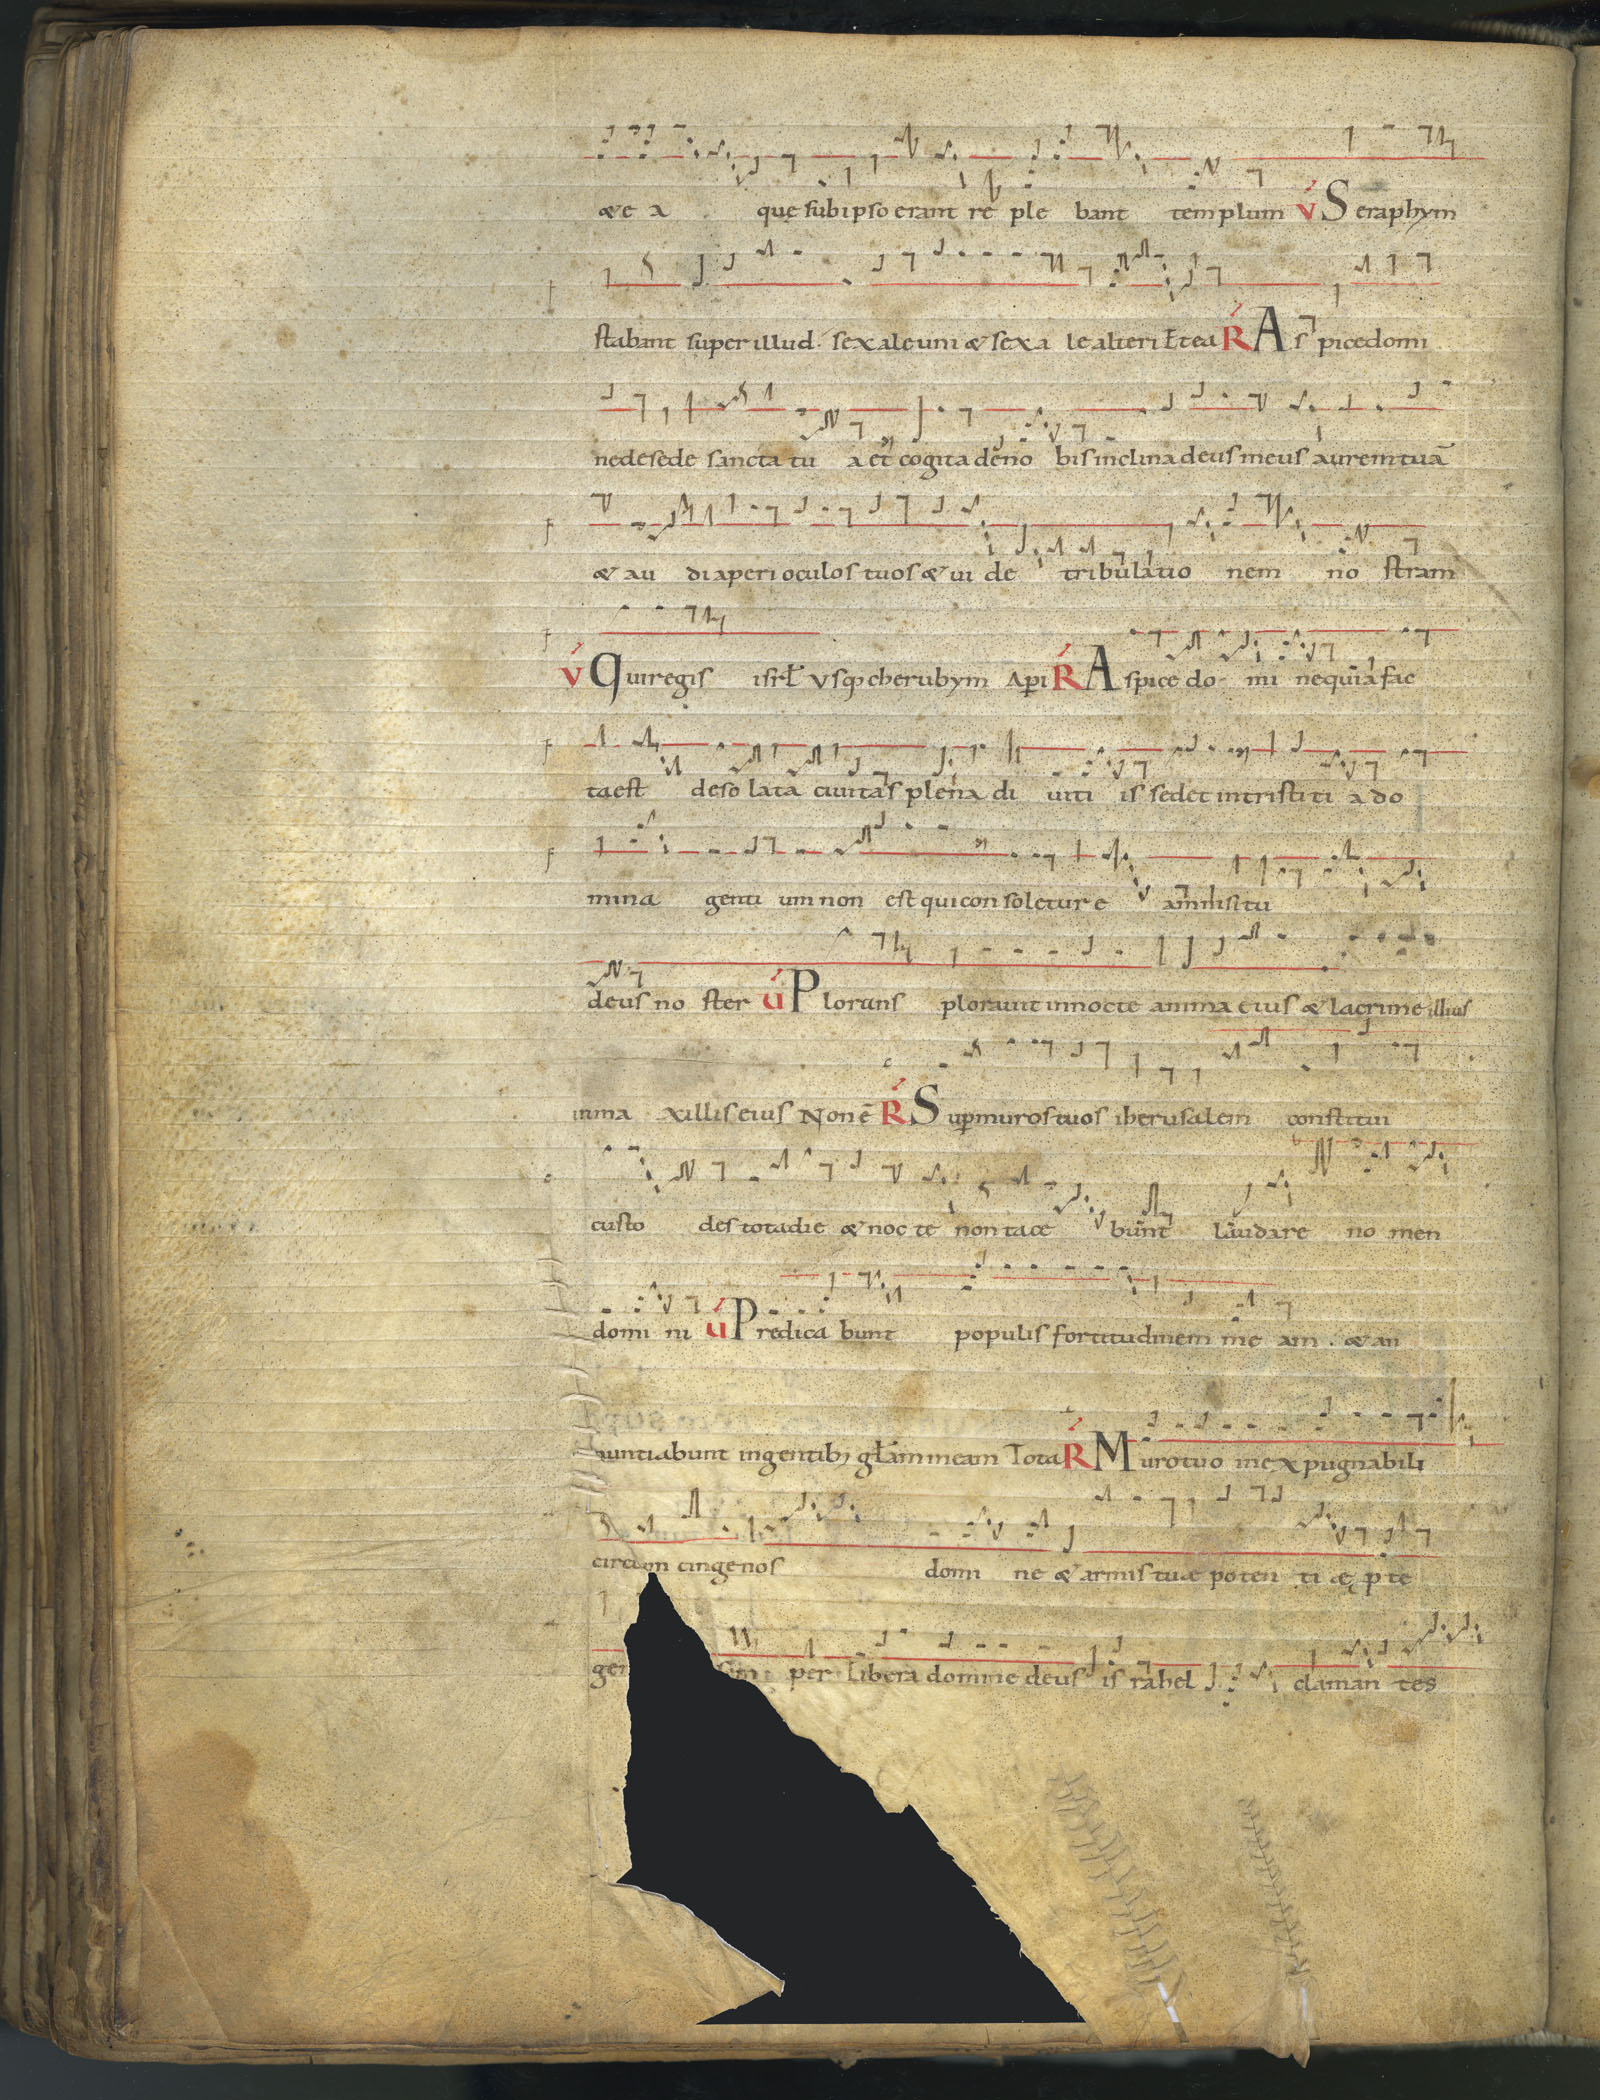 &e a que sub ipso erant re ple bant templum V Seraphym
stabant super illud · sex ale uni & sex a le alteri Et ea R As pice domi
ne de sede sancta tu a et cogita de no bis inclina deus meus aurem tuā
& au di aperi oculos tuos & ui de tribulatio nem no stram
V Qui regis isrł Vsq; cherubym Aperi R Aspice do mi ne quia fac
ta est deso lata ciuitas plena di uiti is sedet in tristi ti a do
mina genti um non est qui con soletur e ammisi tu
deus no ster V Plorans plorauit in nocte amina eius & lacrime illius
in ma xillis eius Non ē R Sup muros tuos iherusalem constitui
custo des tota die & noc te non tace bunt laudare no men
domi ni V Predica bunt populis fortitudinem me am . & an
nuntiabunt in gentib; głam meam Tota R Muro tuo inexpugnabili
circum cinge nos domi ne & armis tuæ poten ti æ p te
ge sem per Libera domine deus is rahel clamantes